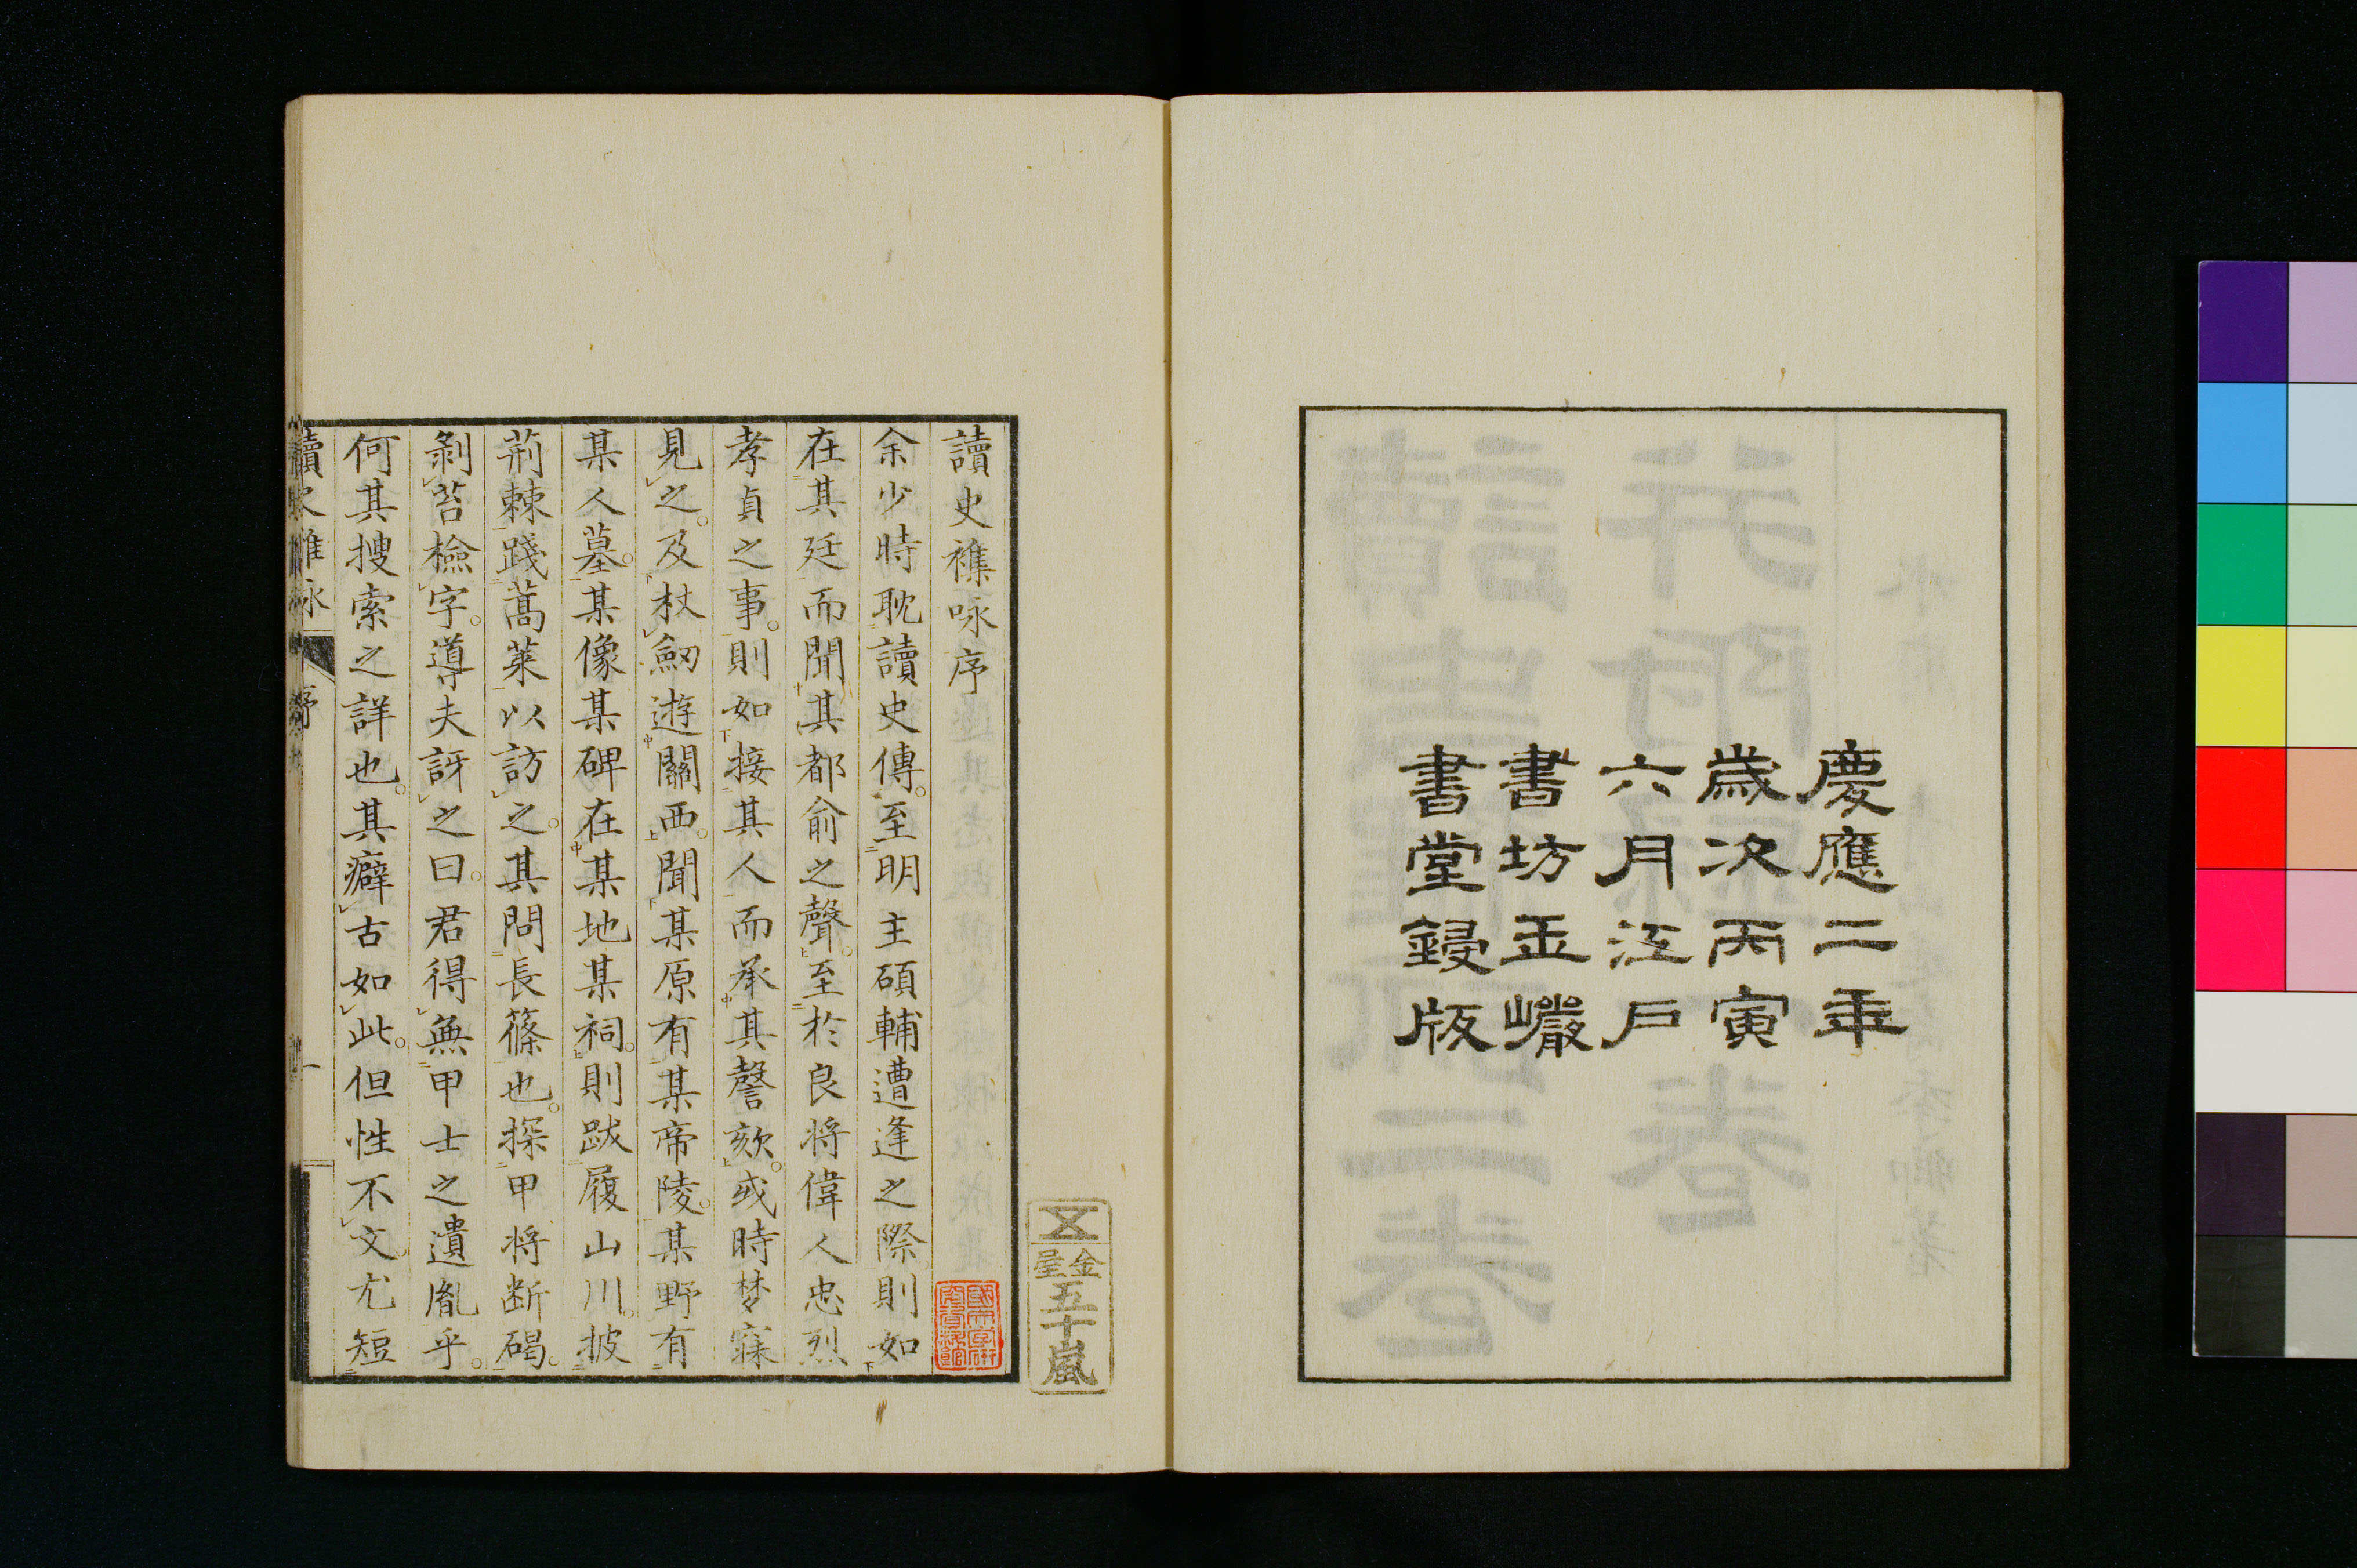 慶應二年
歲次丙寅
六月江戶
書坊玉巖
書堂鋟版
五
金星
五十嵐
讀史襍咏序
余少時耽讀史傳。至明主碩輔遭逢之際則如
在其廷而聞其都俞之聲。至於良将偉人忠烈
孝貞之事。則如接其人而承其謦欬。或時梦寐
見之。及杖劒遊關西。聞某原有某帝陵。某野有
某人墓。某像某碑在某地某祠。則跋履山川。披
荊棘踐蒿萊以訪之。其問長篠也。探甲将断碣。
剝苔檢字。導夫訝之曰。君得無甲士之遺胤乎。
何其搜索之詳也。其癖古如此。但性不文。尤短
讀史雜咏
序
一